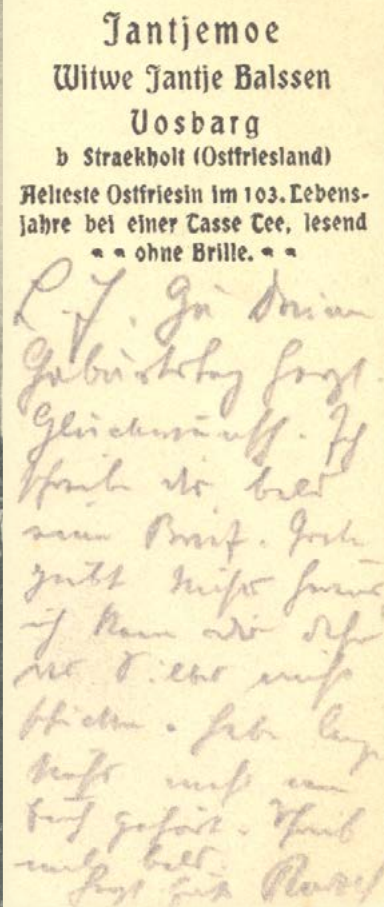 Jantjemoe
Witwe Jantje Balssen
Vosbarg
b Straekholt (Ostfriesland)
Aelteste Ostfriesin im 103. Lebens-
jahre bei einer Tasse Tee, lesend
ohne Brille.
L. J. Zu Deinem
Geburtstag herzl.
Glückwunsch. Ich
schreibe dir bald
einen Brief.
gibt nichts
ich kann dir
nicht
schicken. Habe lange
nichts mehr von
Euch gehört. Schreib
mal bald.
Herzl